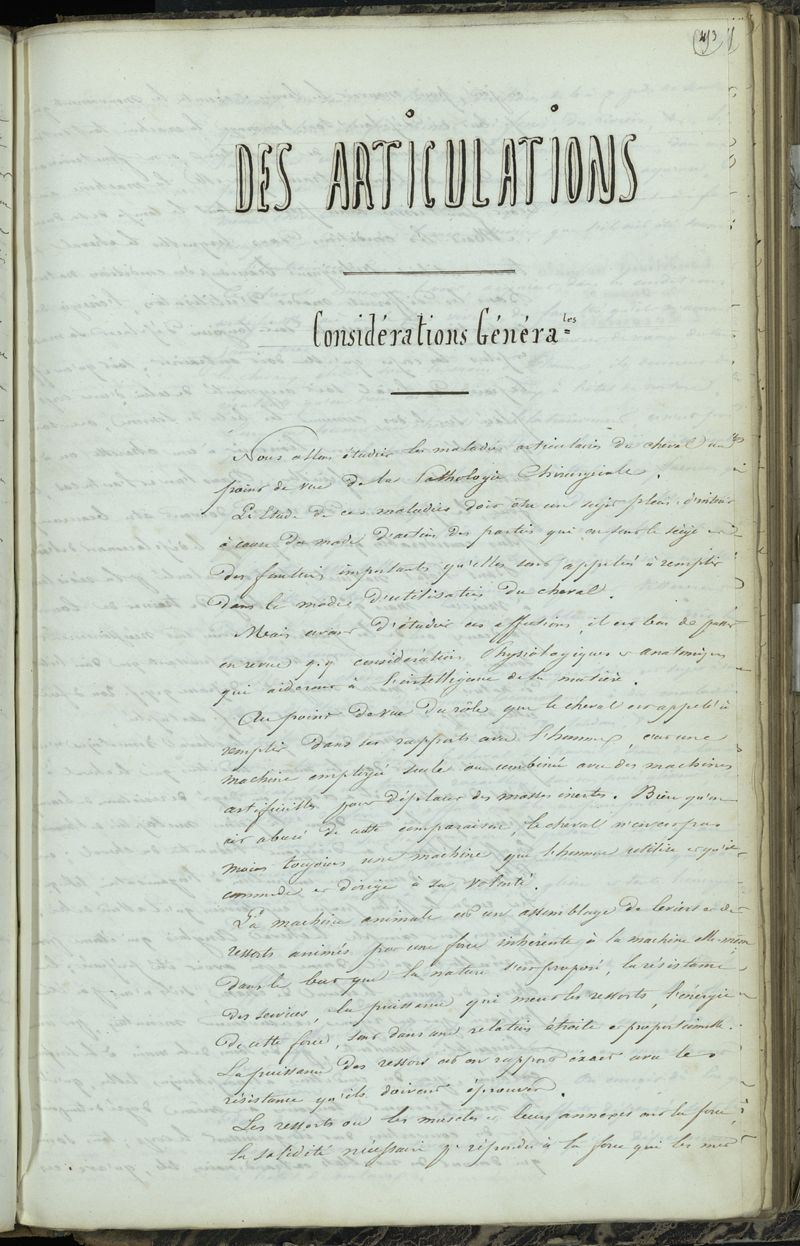 413
DES ARTICULATIONS
Considérations Générales
Nous allons étudier les maladies articulaires du cheval au
point de vue de la Pathologie Chirurgicale.
L'Etude de ces maladies doit être un sujet plein d'intérêt
à cause du mode d'action des parties qui en sont le siège et
des fonctions importantes qu'elles sont appelées à remplir
dans le mode d'utilisation du cheval.
Mais avant d'étudier ces affections, il est bon de passer
en revue q.q. considérations Physiologiques et anatomiques
qui aideront à l'intelligence de la matière.
Au point de vue du rôle que le cheval est appelé à
remplir dans ses rapports avec l'homme, c'est une
machine employée seule ou combinée avec des machines
artificielles pour déplacer des masses inertes. Bien qu'on
ait abusé de cette comparaison, le cheval n'en est pas
moins toujours une machine que l'homme utilise et qu'il
commande et dirige à sa volonté.
La machine animale est un assemblage de leviers et de
ressorts animés par une force inhérente à la machine elle-même
dans le but que la nature s'est proposé, la résistance
des services, la puissance qui meut les ressorts, l'énergie
de cette force, sont dans une relation étroite et proportionnelle.
La puissance des ressorts est en rapport exact avec la
résistance qu'ils doivent éprouver.
Les ressorts ou les muscles et leurs annexes ont la force,
la solidité nécessaire pr répondre à la force qui les meut